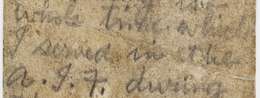 the
whole time which
I served in the
A.I.F. during